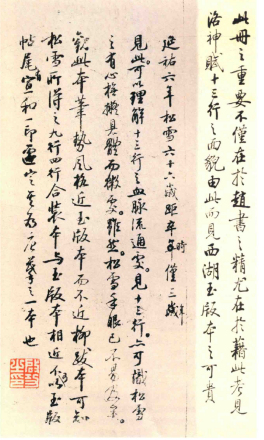 此冊之重要不僅在於趙書之精尤在於藉此考見
洛神賦十三行之面貌由此而見西湖玉版本之可貴
延祐六年松雪六十六歲距卒年僅三歲
見此可以理解十三行之血脈流通處見十三行亦可懺松雪
之有心模擬具體而微處雖然松雪手眼已不易
觀此本筆勢風格近玉版本而不近柳跋本可知
松雪所得之九行四行合裝本與玉版本相近
帖尾宣和一印還它本為唐摹之一本也